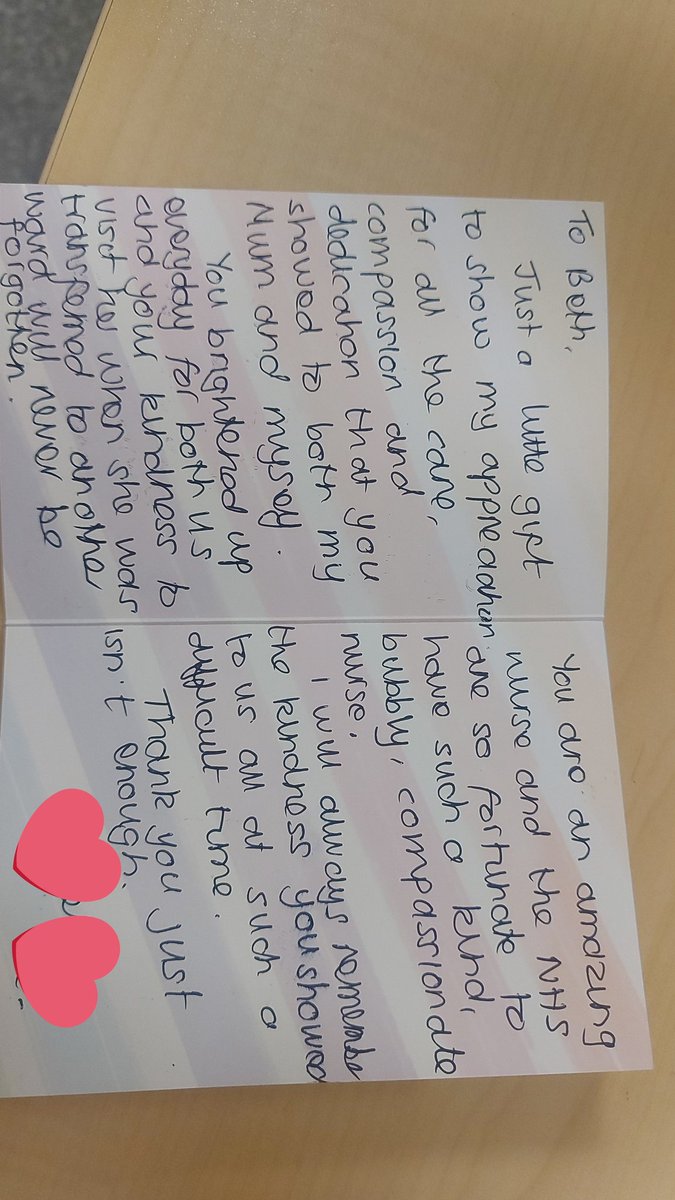 To Beth,
Just a little gift
to show my appreciation
for all the care,
compassion and
dedication that you
showed to both my
Mum and myself.
You brightened up
everyday for both us
and your kindness to
visit her when she was
transferred to another
ward will never be
forgotten.
You are an amazing
nurse and the NHS
are so fortunate to
have such a kind,
bubbly, compassionate
nurse.
I will always remember
the kindness you showed
to us all at such a
difficult time.
Thank you just
isn't enough.